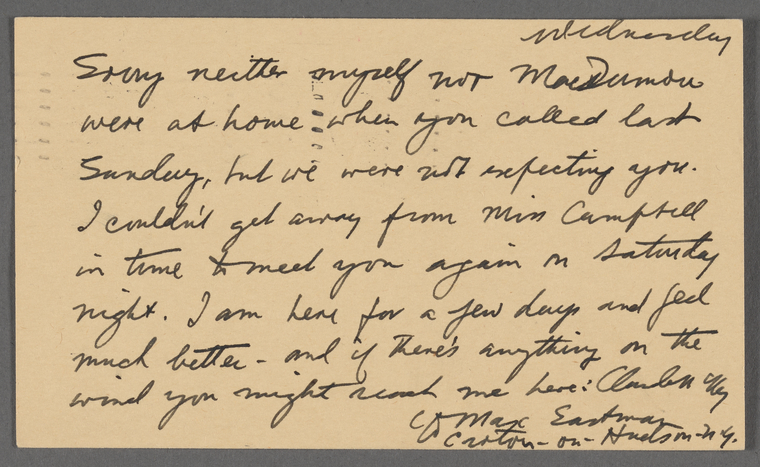 Wednesday
Sorry neither myself nor MacDermou
were at home when you called last
Sunday, but we were not expecting you.
I couldn't get away from Miss Campbell
in time to meet you again on Saturday
night. I am here for a few days and feel
much better - and if there's anything on the
wind you might reach me here: Claude McKay
c/o Max Eastman
Croton-on-Hudson-N.Y.